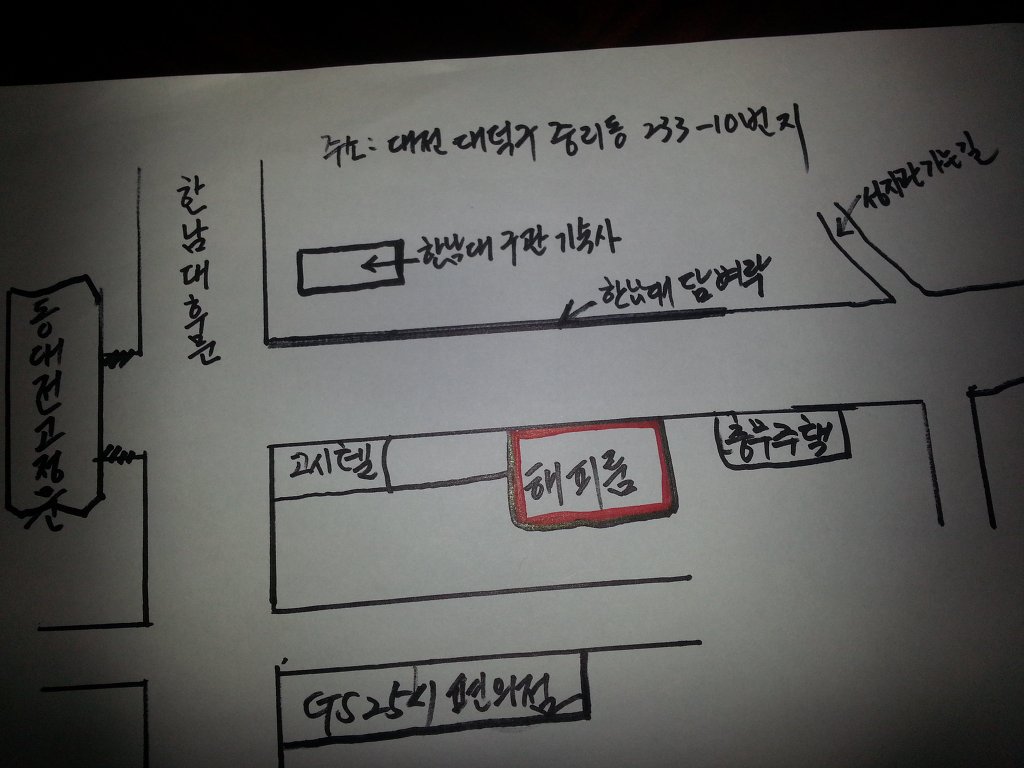 주소: 대전 대덕구 중리동 233-10번지
한남대후문
성지관 가는길
한남대 구관 기숙사
한남대 담벼락
동대전고정문
고시텔
해피룸
종무주택
GS25시 편의점